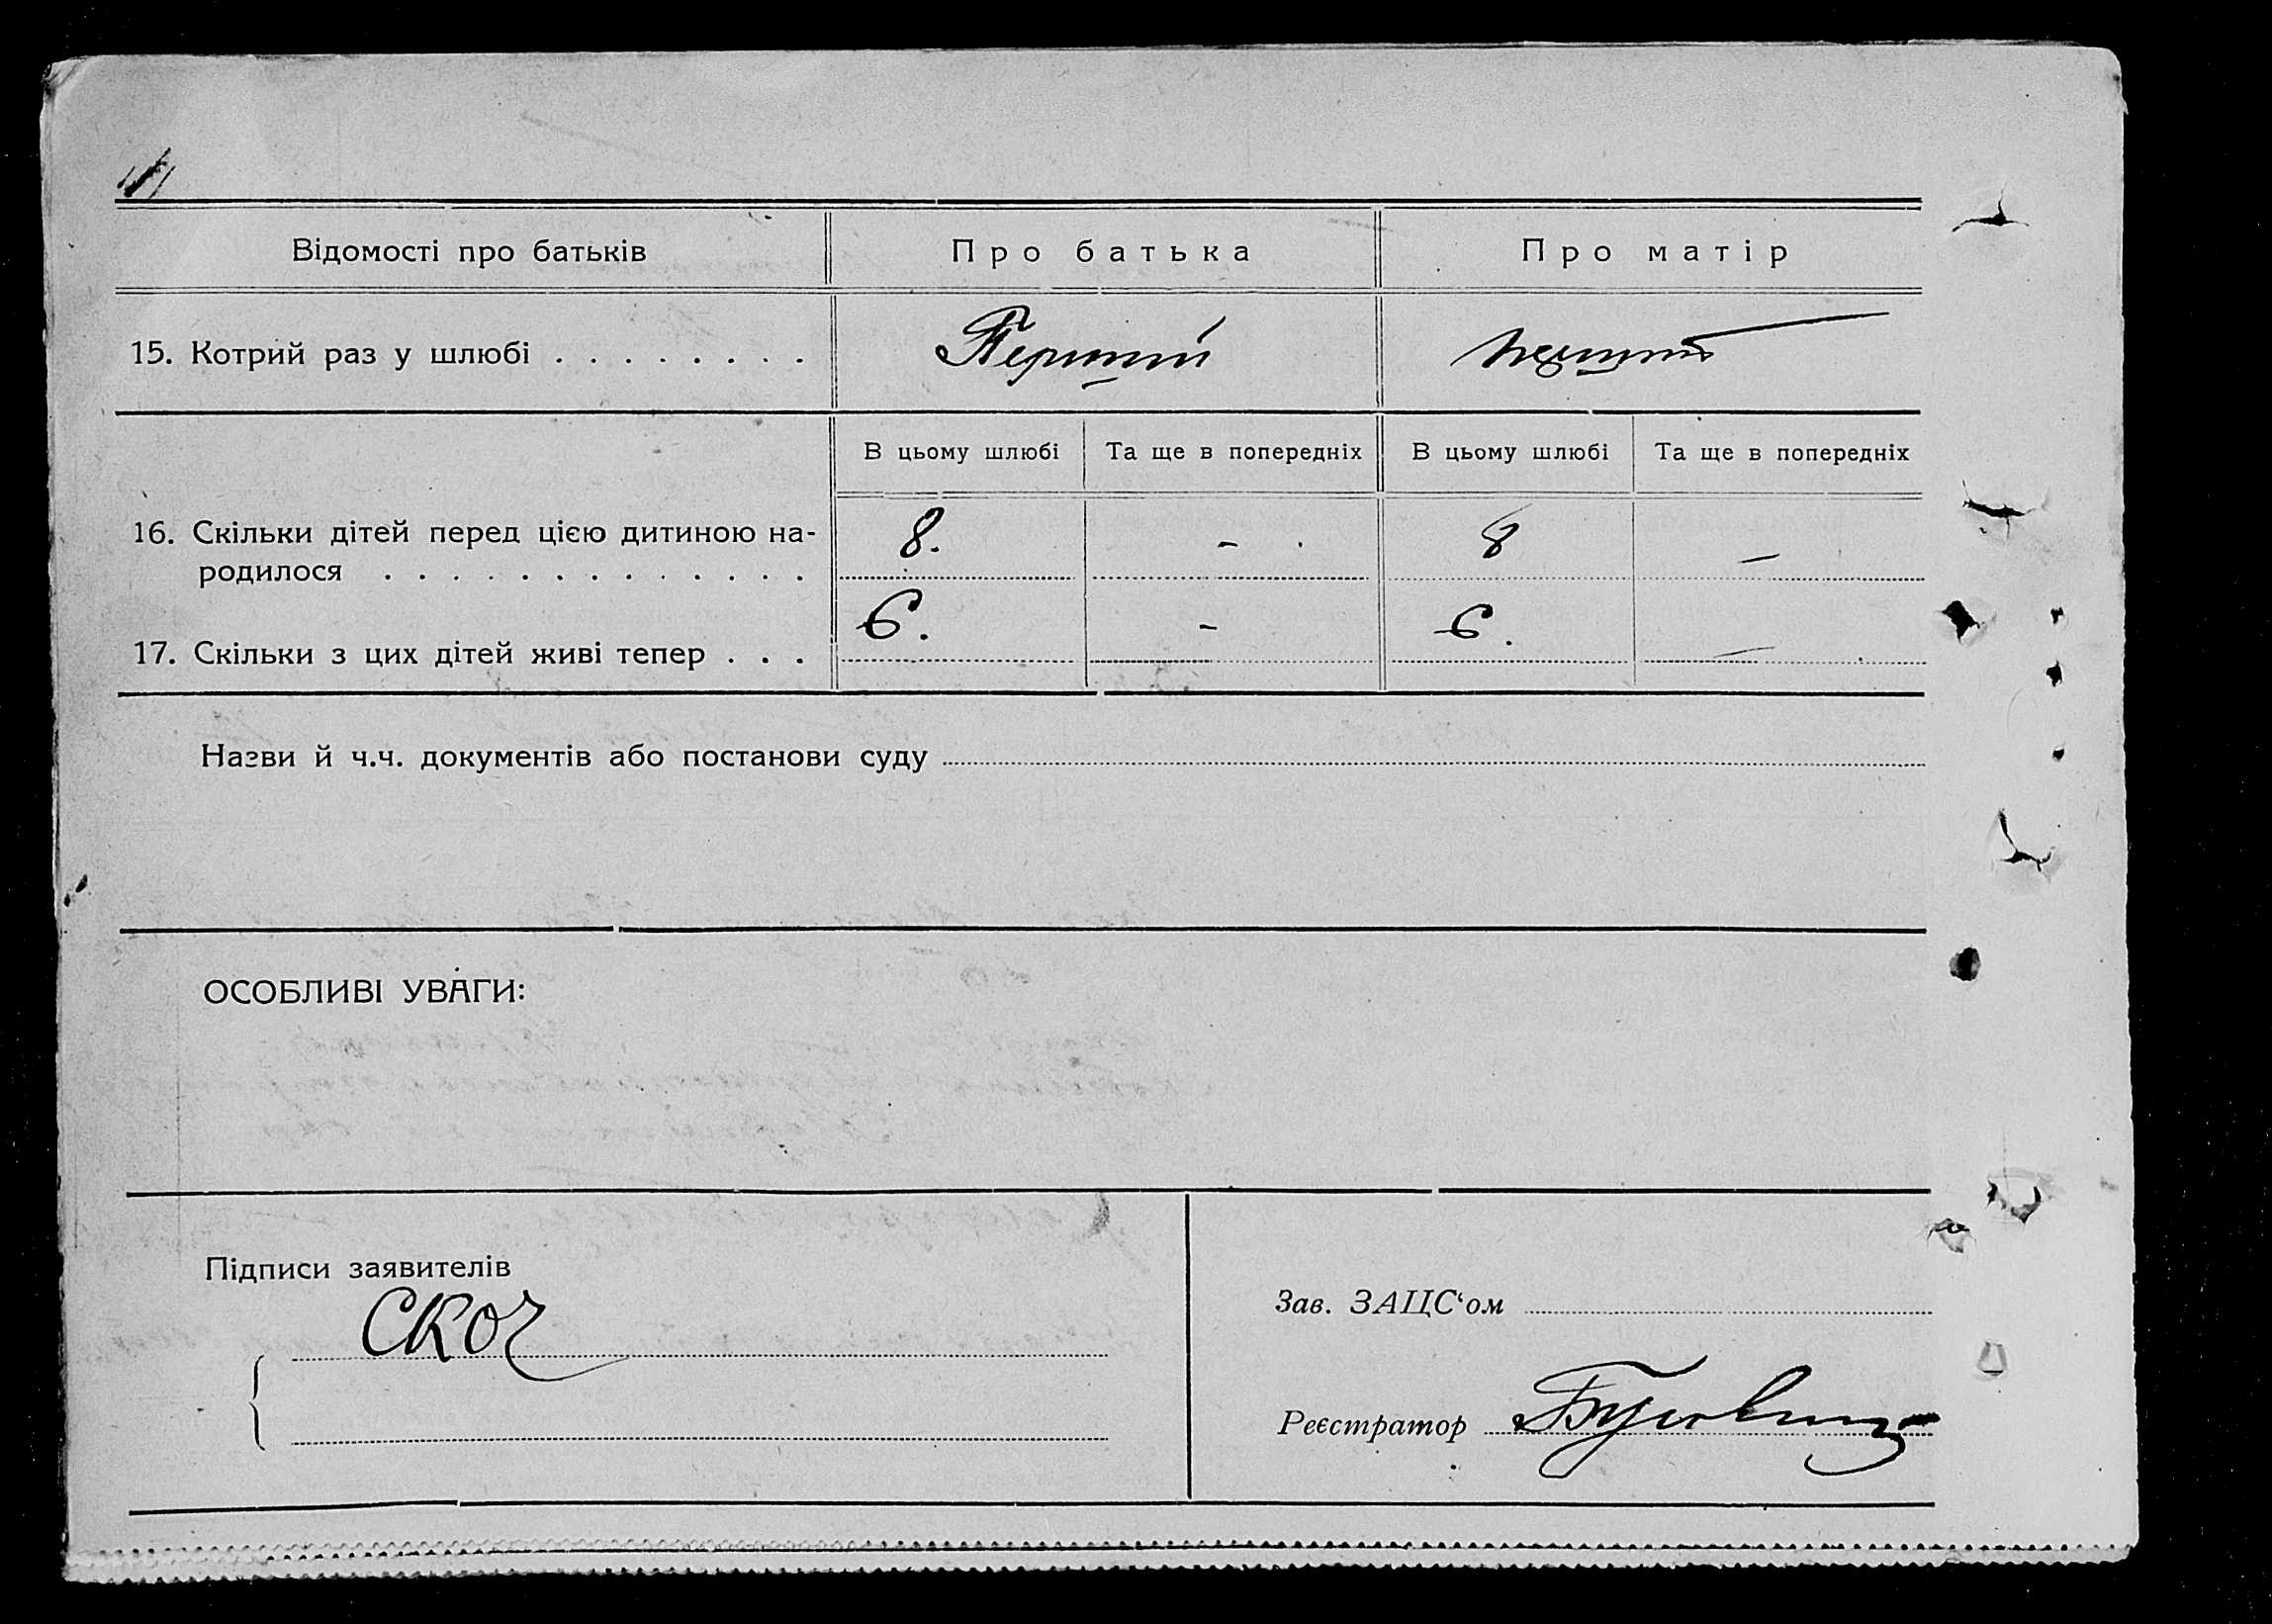 Відомості про батьків Про батька Про матір
15. Котрий раз у шлюбі . . . . . . . . Перший перший
В цьому шлюбі Та ще в попередніх В цьому шлюбі Та ще в попередніх
16. Скільки дітей перед цією дитиною на-
родилося . . . . . . . . . . . . . 8. - 8 —
17. Скільки з цих дітей живі тепер . . . 6. - 6. —
Назви й ч.ч. документів або постанови суду
ОСОБЛИВІ УВАГИ:
Підписи заявителів
Скоч
Зав. ЗАЦС‘ом
Реєстратор